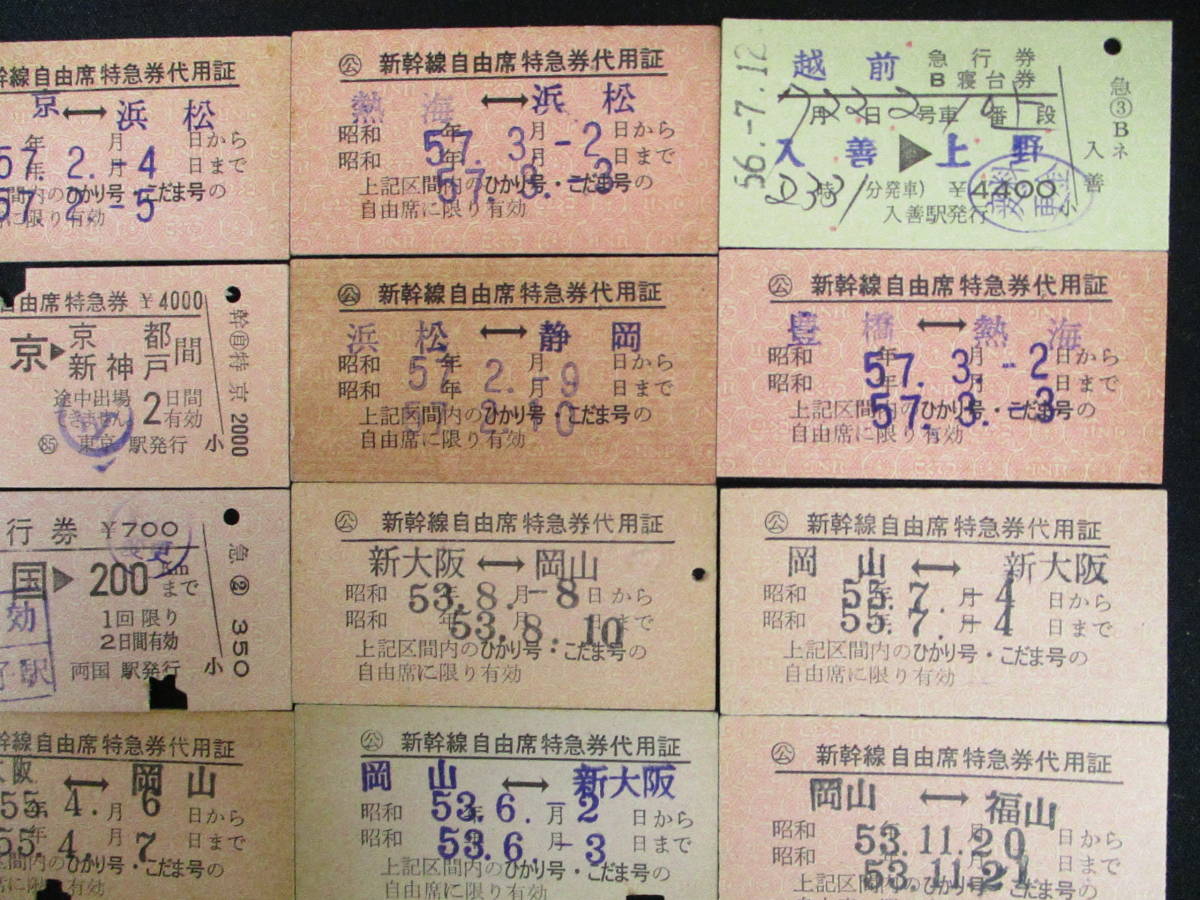 幹線自由席特急券代用証
京 ⟷ 浜松
年 月 日から
57.2.-4
年 月 日まで
57.2.-5
間内のひかり号・こだま号の
自由席に限り有効
公 新幹線自由席特急券代用証
熱海 ⟷ 浜松
昭和 57年3.月-2日から
昭和 57年3.月-3日まで
上記区間内のひかり号・こだま号の
自由席に限り有効
56.-7.12
越前 急行券
B寝台券
7月22日2号車 番 段
入善▶上野
時 分発車) ¥4400
入善駅発行 小
急③Bネ
入善
由席特急券 ¥4000
京▶京都 新神戸 間
途中出場できません 2日間有効
85 東京 駅発行 小
幹自特 京 2000
公 新幹線自由席特急券代用証
浜松 ⟷ 静岡
昭和 57年2.月-9日から
昭和 57年2.月10日まで
上記区間内のひかり号・こだま号の
自由席に限り有効
公 新幹線自由席特急券代用証
豊橋 ⟷ 熱海
昭和 57年3.月-2日から
昭和 57年3.月-3日まで
上記区間内のひかり号・こだま号の
自由席に限り有効
行券 ¥700
国▶200kmまで
1回限り
2日間有効
両国 駅発行 小
急② 350
効
駅
公 新幹線自由席特急券代用証
新大阪 ⟷ 岡山
昭和 53年8.月-8日から
昭和 53年8.月10日まで
上記区間内のひかり号・こだま号の
自由席に限り有効
公 新幹線自由席特急券代用証
岡山 ⟷ 新大阪
昭和 55年7.月-4日から
昭和 55年7.月-4日まで
上記区間内のひかり号・こだま号の
自由席に限り有効
幹線自由席特急券代用証
大阪 ⟷ 岡山
55年4.月6日から
55年4.月7日まで
間内のひかり号・こだま号の
席に限り有効
公 新幹線自由席特急券代用証
岡山 ⟷ 新大阪
昭和 53年6.月-2日から
昭和 53年6.月-3日まで
上記区間内のひかり号・こだま号の
自由席に限り有効
公 新幹線自由席特急券代用証
岡山 ⟷ 福山
昭和 53年11.月20日から
昭和 53年11.月21日まで
上記区間内のひかり号・こだま号の